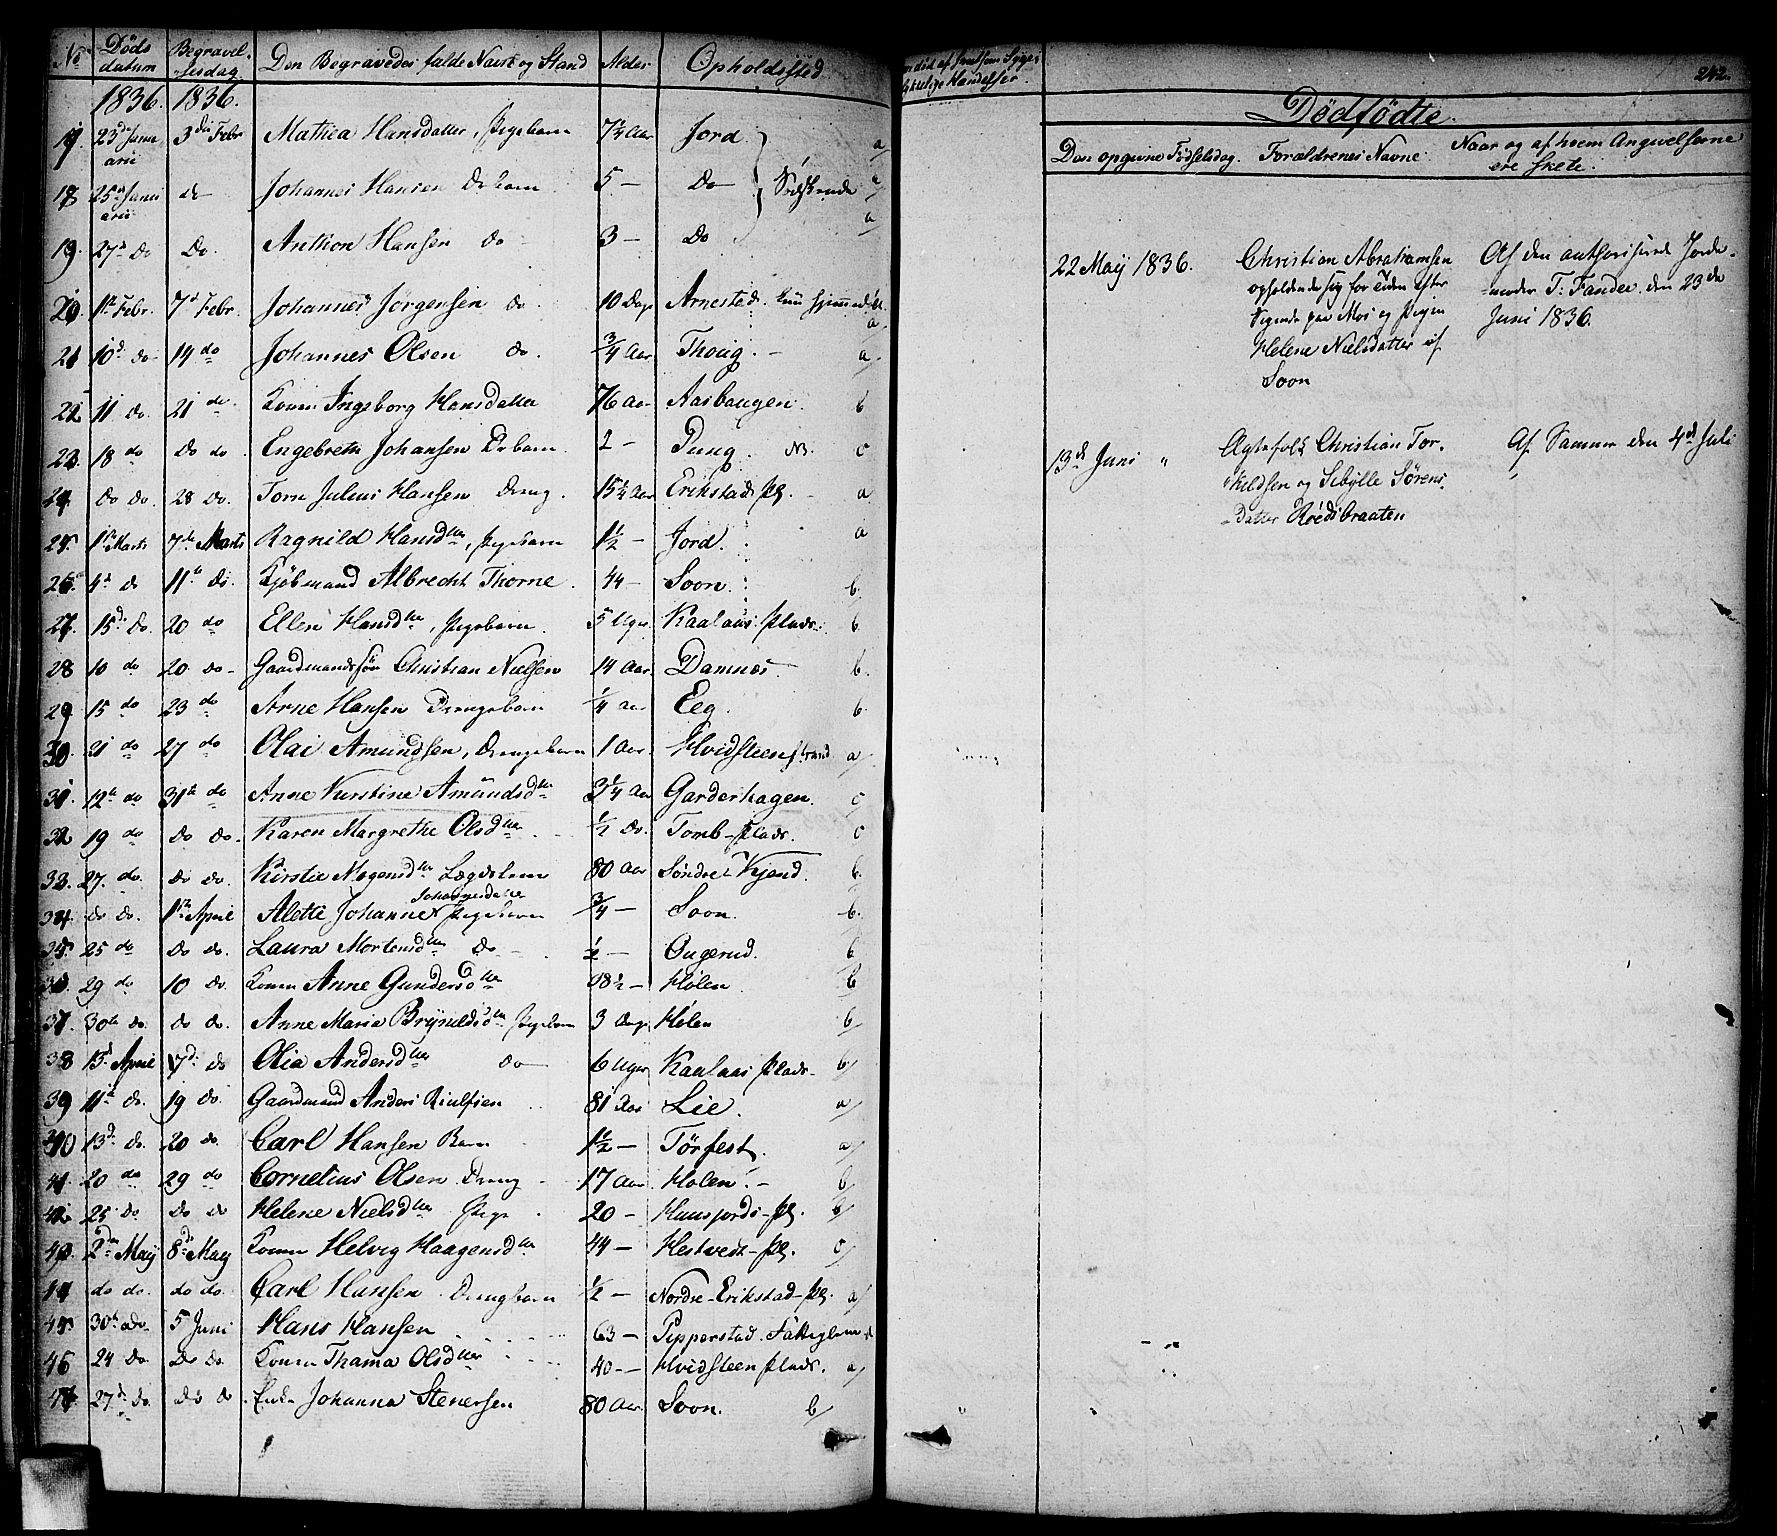 No Døds datum Begravelsesdag Den Begravedes fulde Navn og Stand Alder Opholdssted
1836. 1836.
17 23de Janu arii 3die Febr Mathea Hansdatter, Pigebarn 7 1/4 Aar Jord a/
18 25de Janu arii do Johannes Hansen Do barn 5 — Do Sødskende a/
19 27de Do Do. Anthon Hansen do 3 — Do a/
20 1ste Febr. 7de Febr. Johannes Jørgensen do 10 Dage Arnestad. a/
21 10d. do 14 do Johannes Olsen do. 3/4 Aar Thoug. — a.
22 11 do. 21 do. Konen Ingeborg Hansdatter 76 Aar Aashaugen. b
23 18 do Do do Engebreth Johansen Drbarn 2 — Pung. NB. c
24 Do Do. 28 Do. Torn Julius Hansen Dreng. 15 1/4 Aar Erikstads Pl. a
25 1ste Marts 7de Marts Ragnild Hansdtr, Pigebarn 1 1/2 — Jord. a
26 4d do 11te do. Kjøbmand Albrecht Thorne 44 — Soon. b.
27 15d. Do. 20 do Ellen Hansdtr, Pigebarn. 5 Uger Kaalaas Plads. b.
28 10 do 20 do Gaardmandssøn Christian Nielsen 14 Aar Damnæs. b.
29 15 do 23 do Arne Hansen Drengebarn 1/4 Aar Eeg. b.
30. 21 do 27 do Olai Amundsen, Drengebarn 1 Aar. Hvidsteensstrand a/
31. 12te do 31te do Anne Kirstine Amundsdtr 3 1/4 Aar Garderhagen. c
32 19 do Do Do. Karen Margrethe Olsdtr 1/2 do. Tomb-Plads. c
33. 27. do. do do. Kirstie Mogensdtr Lægdslem 80 Aar Søndre Kjend. b.
Johannesdatter
34. do do. 1ste April Alette Johanne Pigebarn 3/4 — Soon. b.
35. 25 do Do Do. Laura Mortensdtr Do 1/2 — Ougerud. b
36. 29 do 10 Do. Konen Anne Gundersdtr 1/2 — Holen. b
37. 30te do. do do. Anne Maria Brynildsdtr Pigebarn 3 Dage Holen b/
38 April 17d. do Olia Andersdtr do 6 Uger Kaalaas Plads b/
39 11te do. 19 do. Gaardmand Anders 81 Aar Lie. a/
40 13d. do. 20 do. Carl Hansen Barn 1 1/2 — Tørfest. a/
41 20 do 29 do Cornelius Olsen Dreng 17 Aar Holen. — b/
42. 25 do do do Helene Nielsdtr Pige 20 — Pl. b/
43. 2den Maij 8d Maij Konen Helvig Haagensdtr 44 — Hestvedt-Pl. c/
44 do do. do do. Carl Hansen Drengbarn 1/2 — Nordre-Erikstad-Pl. a/
45. 30te 5 Juni Hans Hansen 63 — Pipperstad. Fattiglem
46 24 do. do do. Konen Thama Olsdtr 40 — Hvidsteen Plads. a/
47 27d. do. do do Enke Johanna Stenersen 80 Aar. Soon. b/
242.
Dødfødte.
Den opgivne Fødselsdag. Forældrenes Navne Naar og af hvem Angivelserne
ere skete.
22 Maij 1836. Christian Abrahamsen Af den authoriserede Jorde-
opholdende sig for Tiden efter moder T. Fander. den 23de
Sigende paa Mos og Pigen Juni 1836.
Helene Nielsdatter af
Soon
13d Juni " Ægtefolk Christian Tor- Af Samme den 4de Juli
kildsen og Sibylle Sørens
datter Roedsbraaten